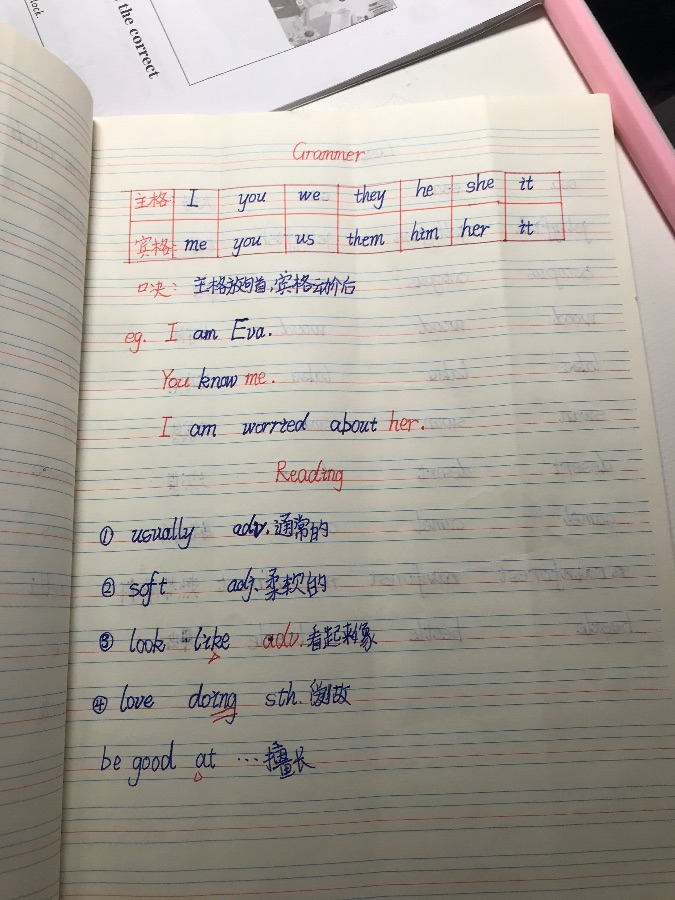 lock.
the correct
Grammer
主格: I you we they he she it
宾格: me you us them him her it
口决: 主格放句首,宾格动介后
eg. I am Eva.
You know me.
I am worried about her.
Reading
① usually adv. 通常的
② soft adj. 柔软的
③ look like adv. 看起来像
④ love doing sth.
be good at … 擅长